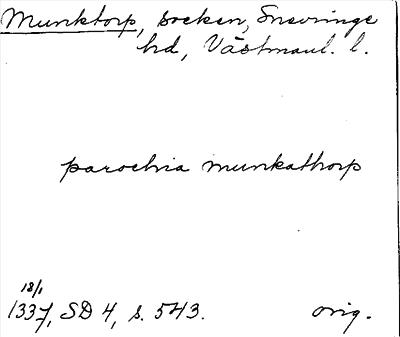 Munktorp, socken, Snevringe
hd, Västmanl. l.
parochia munkathorp
18/1
1337, SD 4, s. 543.
orig.